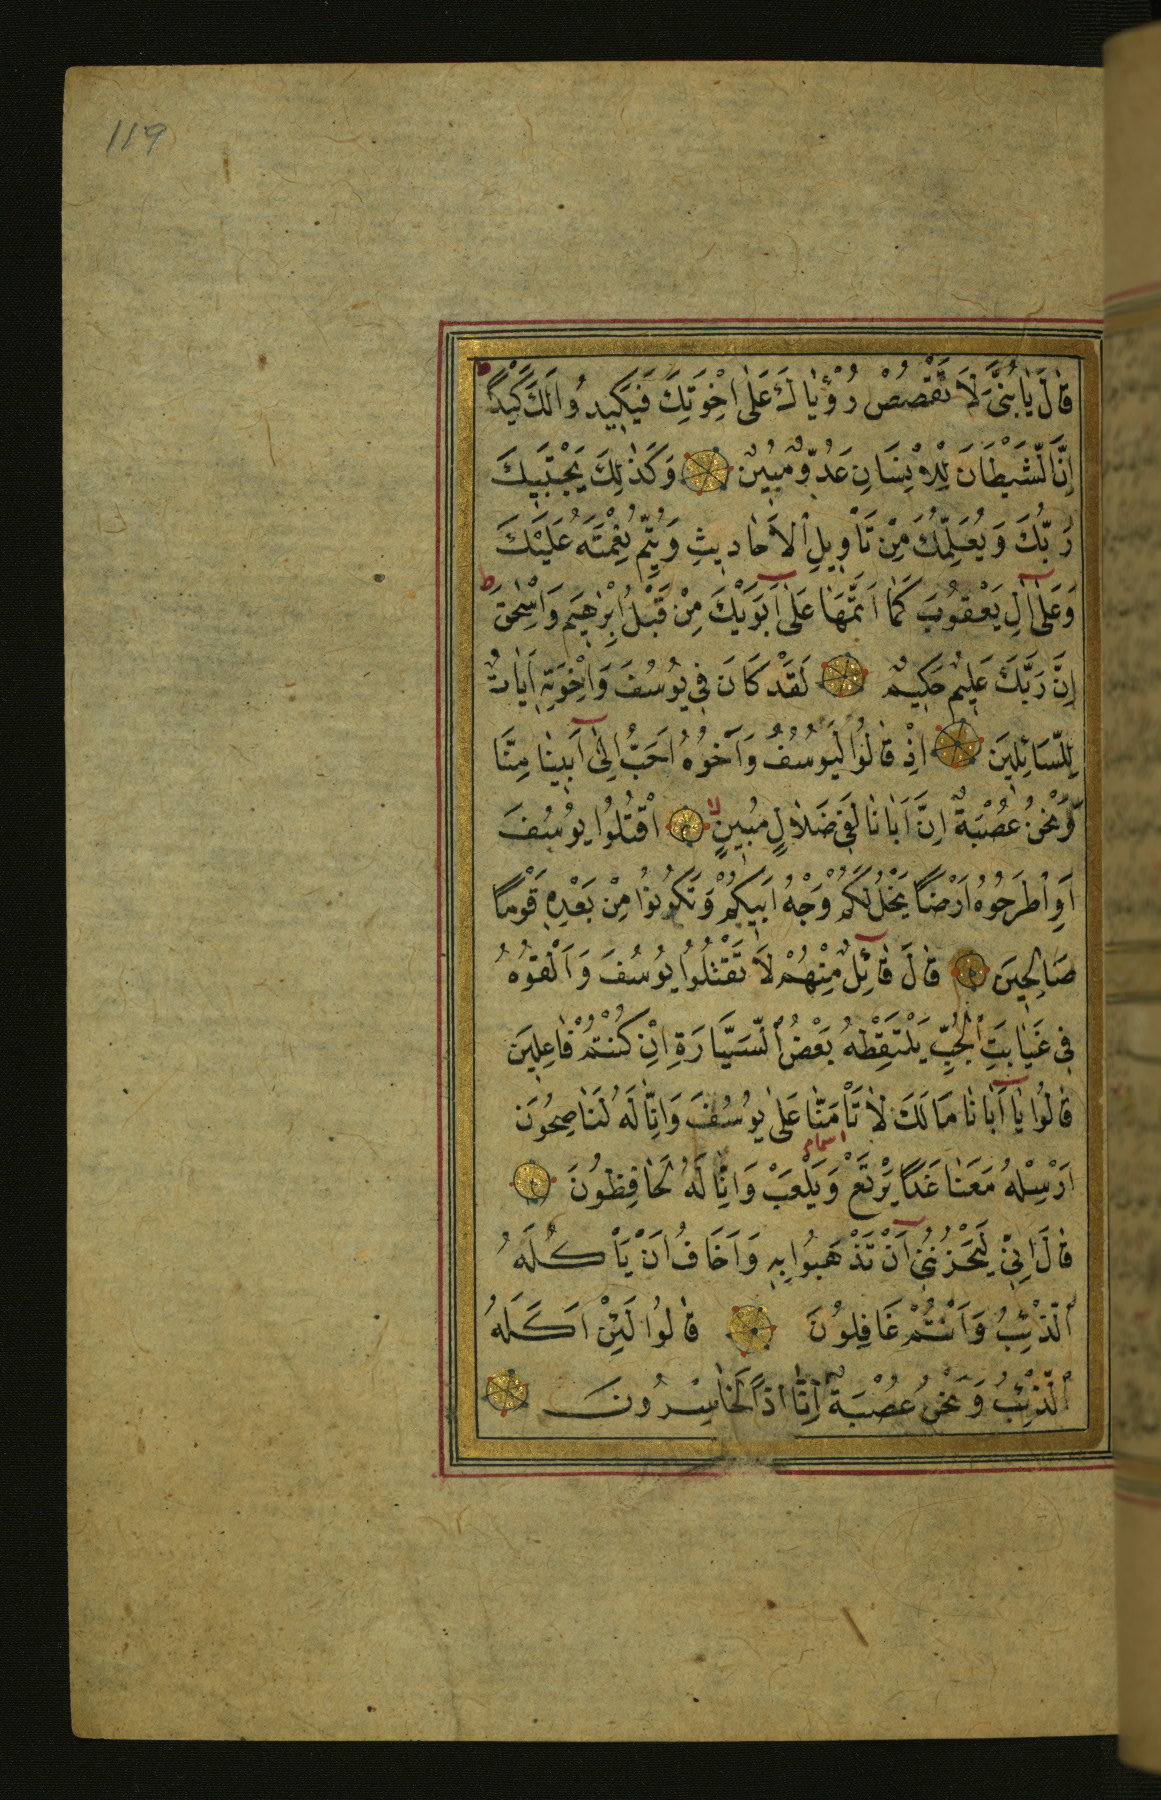 119
قَالَ يَا بُنَيَّ لَا تَقْصُصْ رُؤْيَاكَ عَلَى اِخْوَتِكَ فَيَكِيدُوا لَكَ كَيْدًا ط
اِنَّ الشَّيْطَانَ لِلْاِنْسَانِ عَدُوٌّ مُبِينٌ وَكَذٰلِكَ يَجْتَبِيكَ
رَبُّكَ وَيُعَلِّمُكَ مِنْ تَأْوِيلِ الْاَحَادِيثِ وَيُتِمُّ نِعْمَتَهُ عَلَيْكَ
وَعَلٰى اٰلِ يَعْقُوبَ كَمَا اَتَمَّهَا عَلٰى اَبَوَيْكَ مِنْ قَبْلُ اِبْرٰهِيمَ وَاِسْحٰقَ ط
اِنَّ رَبَّكَ عَلِيمٌ حَكِيمٌ لَقَدْ كَانَ فِي يُوسُفَ وَاِخْوَتِهِ اٰيَاتٌ
لِلسَّائِلِينَ اِذْ قَالُوا لَيُوسُفُ وَاَخُوهُ اَحَبُّ اِلٰى اَبِينَا مِنَّا
وَنَحْنُ عُصْبَةٌ اِنَّ اَبَانَا لَفِي ضَلَالٍ مُبِينٍ لا اُقْتُلُوا يُوسُفَ
اَوِ اطْرَحُوهُ اَرْضًا يَخْلُ لَكُمْ وَجْهُ اَبِيكُمْ وَتَكُونُوا مِنْ بَعْدِهِ قَوْمًا
صَالِحِينَ قَالَ قَائِلٌ مِنْهُمْ لَا تَقْتُلُوا يُوسُفَ وَاَلْقُوهُ
فِي غَيَابَتِ الْجُبِّ يَلْتَقِطْهُ بَعْضُ السَّيَّارَةِ اِنْ كُنْتُمْ فَاعِلِينَ
قَالُوا يَا اَبَانَا مَا لَكَ لَا تَأْمَنَّا عَلٰى يُوسُفَ وَاِنَّا لَهُ لَنَاصِحُونَ
اَرْسِلْهُ مَعَنَا غَدًا يَرْتَعْ وَيَلْعَبْ وَاِنَّا لَهُ لَحَافِظُونَ
قَالَ اِنِّي لَيَحْزُنُنِي اَنْ تَذْهَبُوا بِهِ وَاَخَافُ اَنْ يَأْكُلَهُ
الذِّئْبُ وَاَنْتُمْ غَافِلُونَ قَالُوا لَئِنْ اَكَلَهُ
الذِّئْبُ وَنَحْنُ عُصْبَةٌ اِنَّا اِذًا لَخَاسِرُونَ